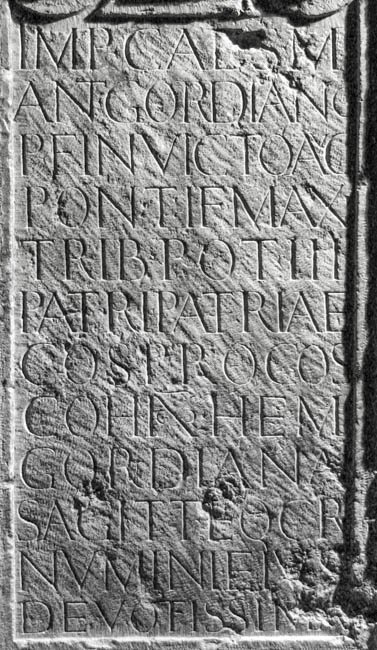 IMP·CAES M
ANT·GORDIANO
P·F·INVICTO AVG
PONTIF MAX
TRIB·POT III
PATRI PATRIAE
COS PROCOS
COH I HEM
GORDIANA
SAGITT EQ C R
NVMINI EIVS
DEVOTISSIMA